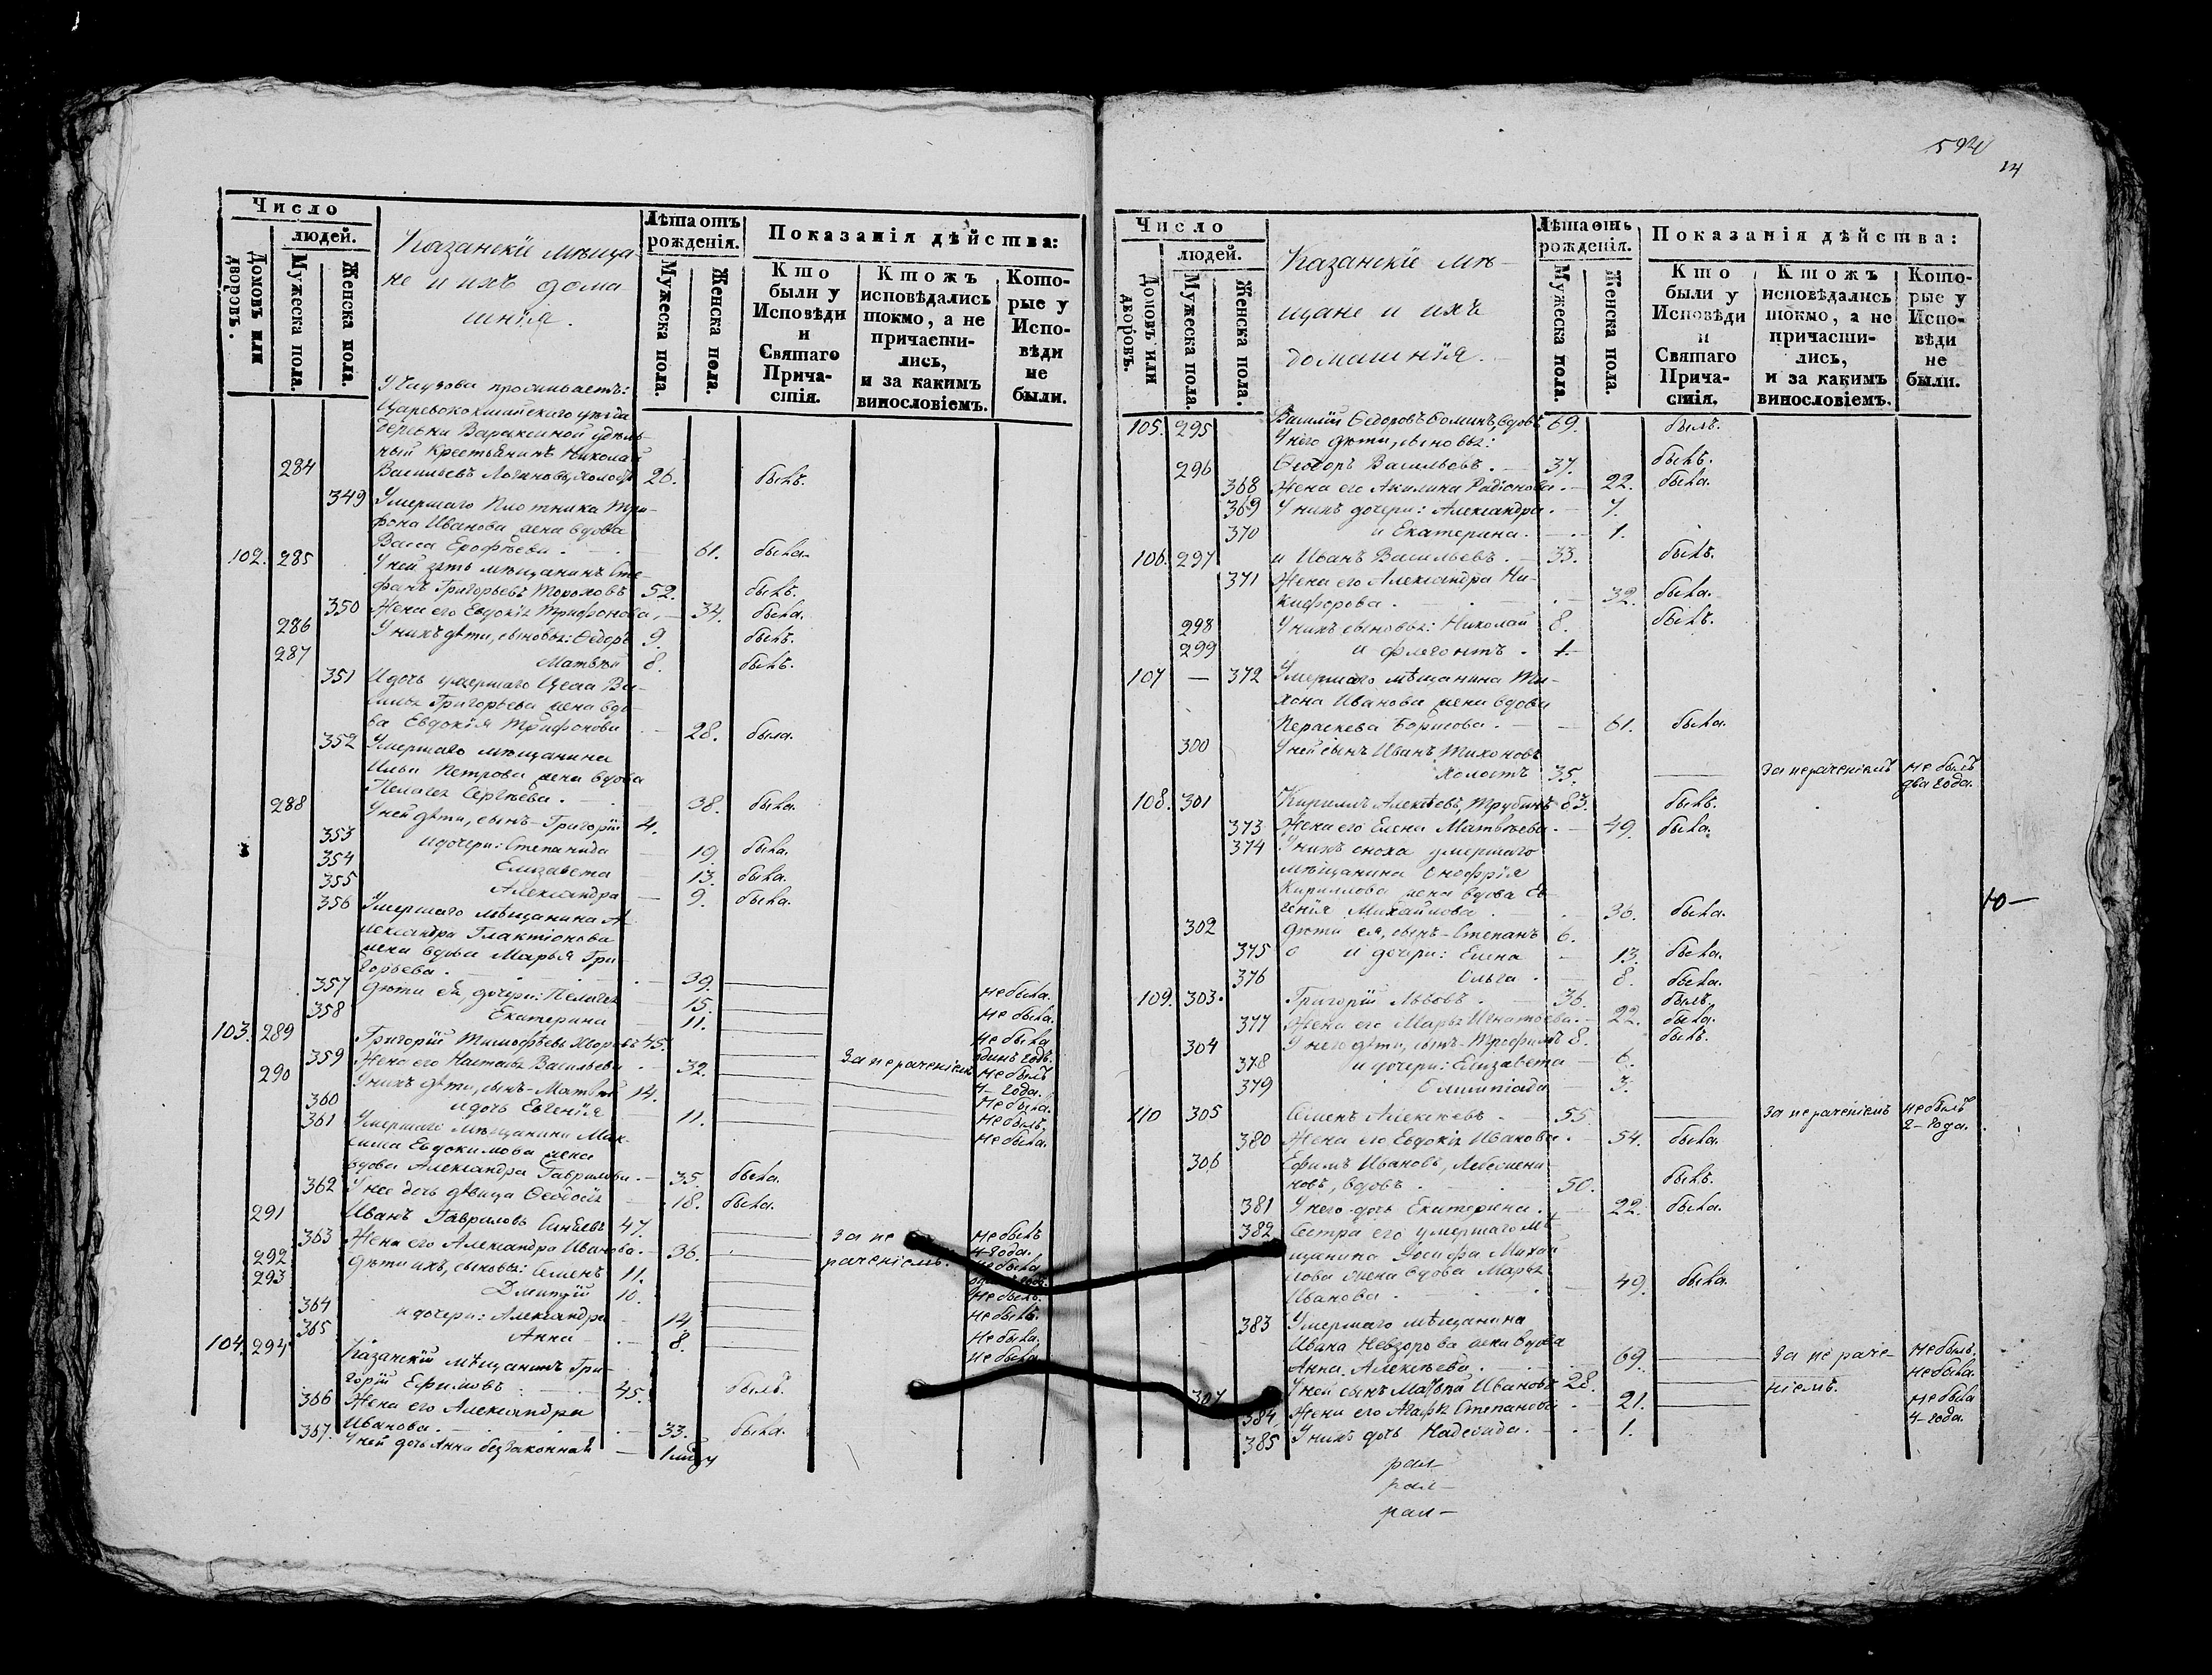 594
14
Число
людей.
Домовъ или дворовъ.
Мужеска пола.
Женска пола.
Казанскіи мѣща-
не и ихъ дома
шнія.
Лѣта отъ рожденія.
Мужеска пола.
Женска пола.
Показанія дѣйства:
Кто были у Исповѣди и Святаго Прича-стія.
Ктожъ исповѣдались токмо, а не причасти-лись, и за какимъ винословіемъ.
Кото-рые у Испо-вѣди не были.
проживаетъ:
Царевококшайскаго уѣзда
деревни Вараксиной удѣль-
ный крестьянинъ Николай
284 Васильевъ холостъ 26. былъ.
349 Умершаго плотника Три-
фона Иванова жена вдова
Васса Ерофѣева. 61. была.
102. 285 У ней зять мѣщанинъ Сте-
фанъ Григорьевъ 52. былъ.
350 Жена его Евдокія Трифонова, 34. была.
286 У нихъ дѣти, сыновья: Ѳедоръ 9. былъ.
287 Матвѣй 8. былъ.
351 И дочь умершаго Ва-
силья Григорьева жена вдо-
ва Евдокія Трифонова 28. была.
352 Умершаго мѣщанина
Ильи Петрова жена вдова
Пелагея Сергѣева. 38. была.
288 У ней дѣти, сынъ - Григорій 4.
353 и дочери: Степанида 19. была.
354 Елизавета 13. была.
355 Александра 9. была.
356 Умершаго мѣщанина А-
лександра Галактіонова
жена вдова Марья Гри-
горьева. 39. не была.
357 Дѣти ея, дочери: Пелагея 15. не была.
358 Екатерина 11. не была
103. 289 Григорій Тимофѣевъ 45. за нераченіемъ одинъ годъ.
359 Жена его Настасья Васильева 32. не былъ
4-года.
290 У нихъ дѣти, сынъ - Матвѣй 14. не была.
360 и дочь Евгенія 11. не былъ,
361 Умершаго мѣщанина Мак- не была.
сима Евдокимова жена
вдова Александра Гаврилова. 35. была.
362 У нее дочь дѣвица Ѳедосья 18. была.
291 Иванъ Гавриловъ 47. за не не былъ
363 Жена его Александра Иванова. 36. раченіемъ. 4-года.
292 Дѣти ихъ, сыновья: Семенъ 11. не была
293 Дмитрій 10. не былъ.
364 и дочери: Александра 14. не былъ.
365 Анна 8. не была.
104. 294 Казанскій мѣщанинъ Гри- не была.
горій Ефимовъ 45. былъ.
366 Жена его Александра
Иванова. 33. была.
367. У ней дочь Анна беззаконная
Число
людей.
Домовъ или дворовъ.
Мужеска пола.
Женска пола.
Казанскіи мѣ-
щане и ихъ
домашнія.
Лѣта отъ рожденія.
Мужеска пола.
Женска пола.
Показанія дѣйства:
Кто были у Исповѣди и Святаго Прича-стія.
Ктожъ исповѣдались токмо, а не причасти-лись, и за какимъ винословіемъ.
Кото-рые у Испо-вѣди не были.
105. 295 Василій Ѳедоровъ Ѳоминъ, вдовъ 69. былъ.
У него дѣти, сыновья:
296 Ѳеодоръ Васильевъ. 37. былъ.
368 Жена его Акилина Радіонова. 22. была.
369 У нихъ дочери: Александра. 7.
370 и Екатерина. 1.
106. 297 и Иванъ Васильевъ. 33. былъ.
371 Жена его Александра Ни-
кифорова. 32. была.
298 У нихъ сыновья: Николай 8. былъ.
299 и Флегонтъ. 1.
107 — 372 Умершаго мѣщанина Ти-
хона Иванова жена вдова
Параскева Борисова. 61. была.
300 У ней сынъ Иванъ Тихоновъ
холостъ 35. за нераченіемъ не былъ
два года.
108. 301 Кирилъ Алексѣевъ, Трубинъ 83. былъ.
373 Жена его Елена Матвѣева. 49. была.
374 У нихъ сноха умершаго
мѣщанина Онофрія
Кириллова жена вдова Ев-
генія Михайлова. 36. была.
302 Дѣти ея, сынъ - Степанъ 6.
375 и дочери: Елена 13. была.
376 Ольга. 8. была.
109. 303. Григорій Львовъ. 36. былъ.
377 Жена его Марья Игнатьева. 22. была.
304 У него дѣти, сынъ - Трофимъ 8. былъ.
378 и дочери: Елизавета 6.
379 Олимпіада 3.
110 305 Семенъ Алексѣевъ. 55. за нераченіемъ не былъ
2-года.
380 Жена его Евдокія Иванова. 54. была.
306 Ефимъ Ивановъ,
вдовъ. 50. былъ.
381 У него дочь Екатерина. 22. была.
382 Сестра его умершаго мѣ-
щанина Іосифа Михай
лова жена вдова Марья
Иванова. 49. была.
383 Умершаго мѣщанина
Ивана Невзорова жена вдова
Анна Алексѣева. 69. за нераче- не былъ.
307 У ней сынъ Матвѣй Ивановъ 28. ніемъ. не была.
384. Жена его Агафья Степанова. 21. не была
4-года.
385 У нихъ дочь Надежда. 1.
10—